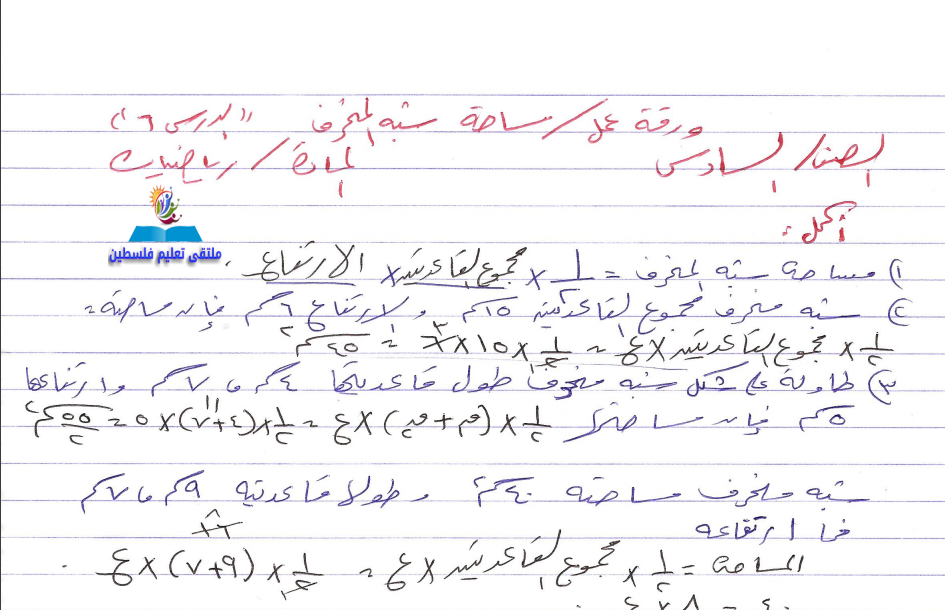 ورقة عمل / مساحة شبه المنحرف "الدرس ٦"
الصف / السادس المادة / رياضيات
أكمل :
ملتقى تعليم فلسطين
١) مساحة شبه المنحرف = ١/٢ × مجموع القاعدتين × الارتفاع .
٢) شبه منحرف مجموع القاعدتين ١٥سم والارتفاع ٦سم فإن مساحته =
١/٢ × مجموع القاعدتين × ع = ١/٢ × ١٥ × ٦ ٣ = ٤٥سم٢
٣) طاولة على شكل شبه منحرف طول قاعدتيها ٤سم ، ٧سم وارتفاعها
٥سم فإن مساحتها ١/٢ × (ق١ + ق٢) × ع = ١/٢ × (٤+٧) ١١ × ٥ = ٥٥/٢ سم٢
شبه منحرف مساحته ٤٠سم٢ وطولا قاعدتيه ٩سم ، ٧سم
فما ارتفاعه
المساحة = ١/٢ × مجموع القاعدتين × ع = ١/٢ × (٩+٧) ١٦ ٨ × ع .
٤٠ = ٨ × ع